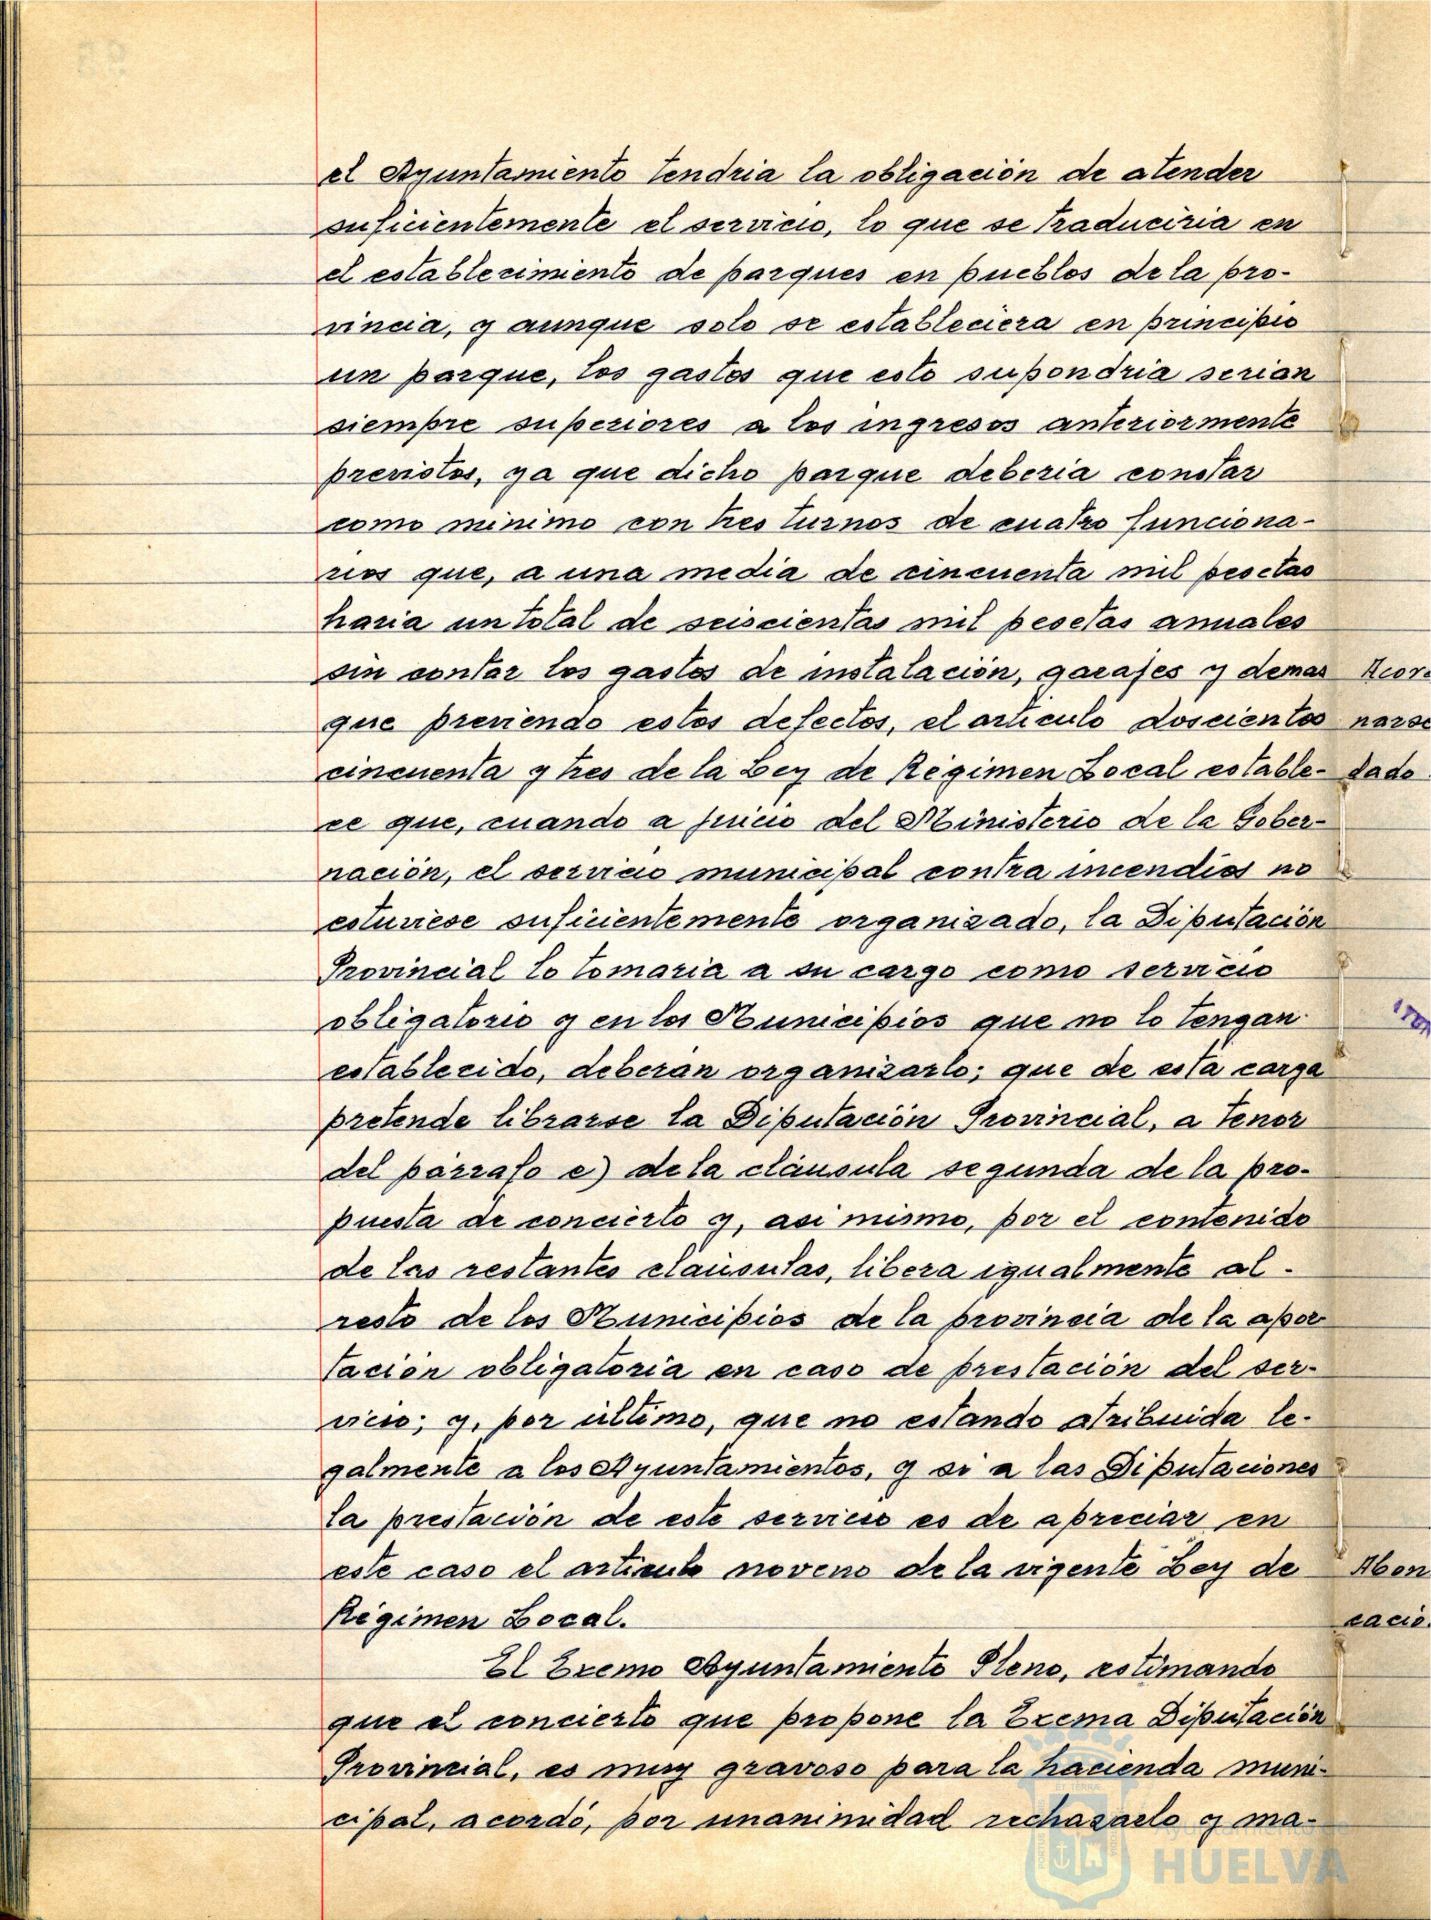 el Ayuntamiento tendria la obligación de atender
suficientemente el servicio, lo que se traduciria en
el establecimiento de parques en pueblos de la pro-
vincia, y aunque solo se estableciera en principio
un parque, los gastos que esto supondria serian
siempre superiores a los ingresos anteriormente
previstos, ya que dicho parque deberia constar
como minimo con tres turnos de cuatro funciona-
rios que, a una media de cincuenta mil pesetas
haria un total de seiscientas mil pesetas anuales
sin contar los gastos de instalación, garajes y demas
que previendo estos defectos, el articulo doscientos
cincuenta y tres de la Ley de Régimen Local estable-
ce que, cuando a juicio del Ministerio de la Gober-
nación, el servicio municipal contra incendios no
estuviese suficientemente organizado, la Diputación
Provincial lo tomaria a su cargo como servicio
obligatorio y en los Municipios que no lo tengan
establecido, deberán organizarlo; que de esta carga
pretende librarse la Diputación Provincial, a tenor
del párrafo e) de la cláusula segunda de la pro-
puesta de concierto y, asi mismo, por el contenido
de las restantes cláusulas, libera igualmente al
resto de los Municipios de la provincia de la apor
tación obligatoria en caso de prestación del ser-
vicio; y, por último, que no estando atribuida le-
galmente a los Ayuntamientos, y si a las Diputaciones
la prestación de este servicio es de apreciar en
este caso el articulo noveno de la vigente Ley de
Régimen Local.
El Excmo Ayuntamiento Pleno, estimando
que el concierto que propone la Excma Diputación
Provincial, es muy gravoso para la hacienda muni-
cipal, acordó, por unanimidad rechazarlo y ma-
Acor
narse
dado
Abon
cació
Ayuntamiento de
HUELVA